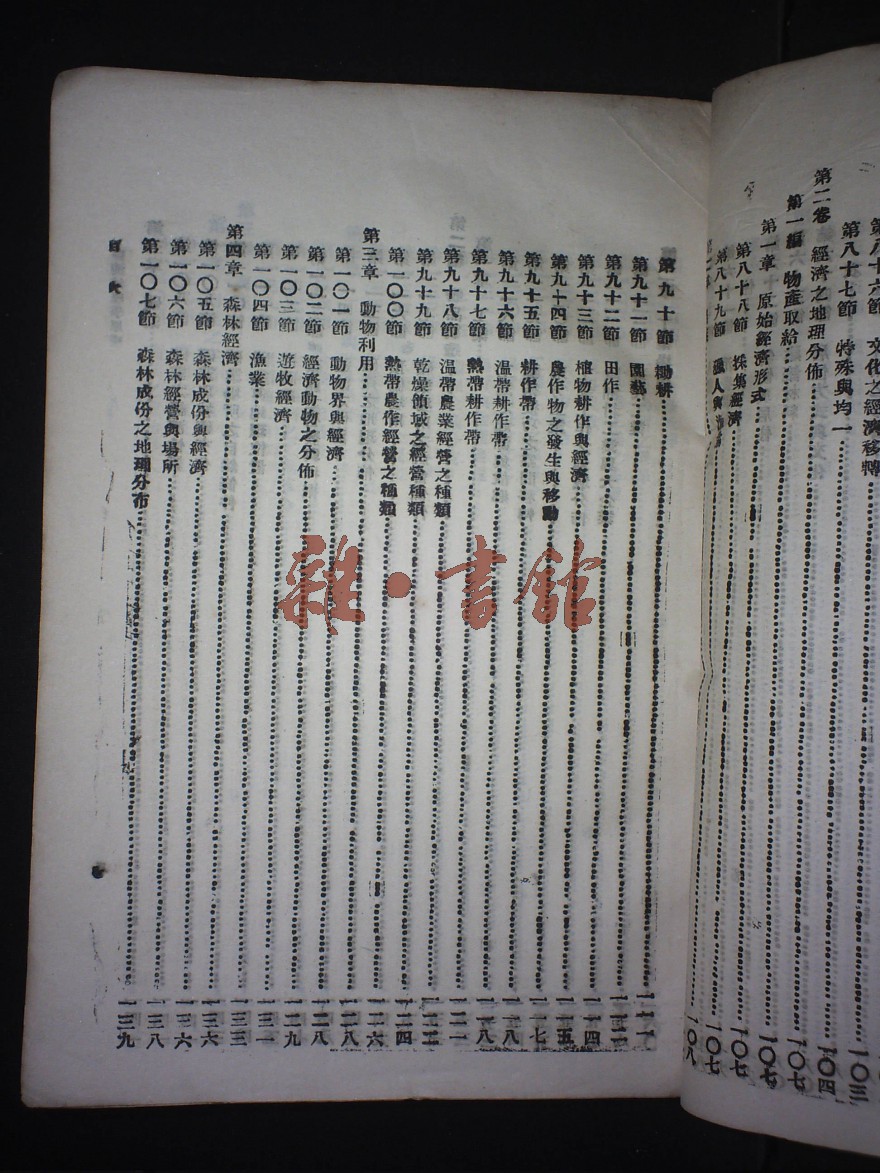 文化之經濟移轉 一〇三
第八十七節 特殊與均一 一〇四
第二卷 經濟之地理分佈 一〇七
第一編 物產取給 一〇七
第一章 原始經濟形式 一〇七
第八十八節 採集經濟 一〇七
第八十九節 一〇八
第九十節 鋤耕
第九十一節 園藝
第九十二節 田作
第九十三節 植物耕作與經濟 一一四
第九十四節 農作物之發生與移動 一一五
第九十五節 耕作帶 一一七
第九十六節 溫帶耕作帶 一一八
第九十七節 熱帶耕作帶 一一八
第九十八節 溫帶農業經營之種類 一二一
第九十九節 乾燥領域之經營種類
第一〇〇節 熱帶農作經營之種類 一二四
第三章 動物利用 一二六
第一〇一節 動物界與經濟 一二八
第一〇二節 經濟動物之分佈 一二八
第一〇三節 遊牧經濟 一二九
第一〇四節 漁業 一三一
第四章 森林經濟 一三三
第一〇五節 森林成份與經濟 一三六
第一〇六節 森林經營與場所 一三八
第一〇七節 森林成份之地理分布 一三九
目次
雜·書館